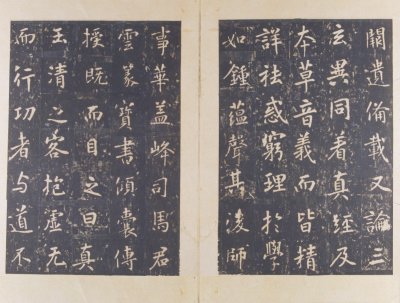 闕遺備載又論三
玄異同著真經及
本草音義而皆精
詳祛惑窮理於學
如鍾蘊聲其後師
事華蓋峰司馬君
雲篆寶書傾囊傳
授既而目之曰真
玉清之客抱虛无
而行功者与道不